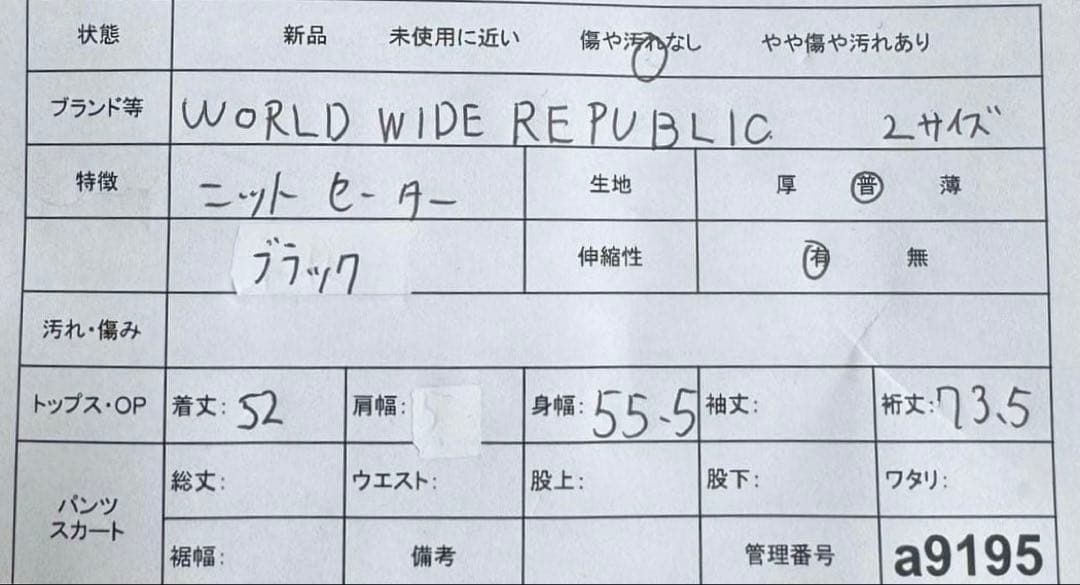 状態 新品 未使用に近い 傷や汚れなし やや傷や汚れあり
ブランド等 WORLD WIDE REPUBLIC 2サイズ
特徴 ニット セーター 生地 厚 普 薄
ブラック 伸縮性 有 無
汚れ・傷み
トップス・OP 着丈: 52 肩幅: 身幅: 55.5 袖丈: 裄丈: 73.5
パンツ スカート 総丈: ウエスト: 股上: 股下: ワタリ:
裾幅: 備考 管理番号 a9195